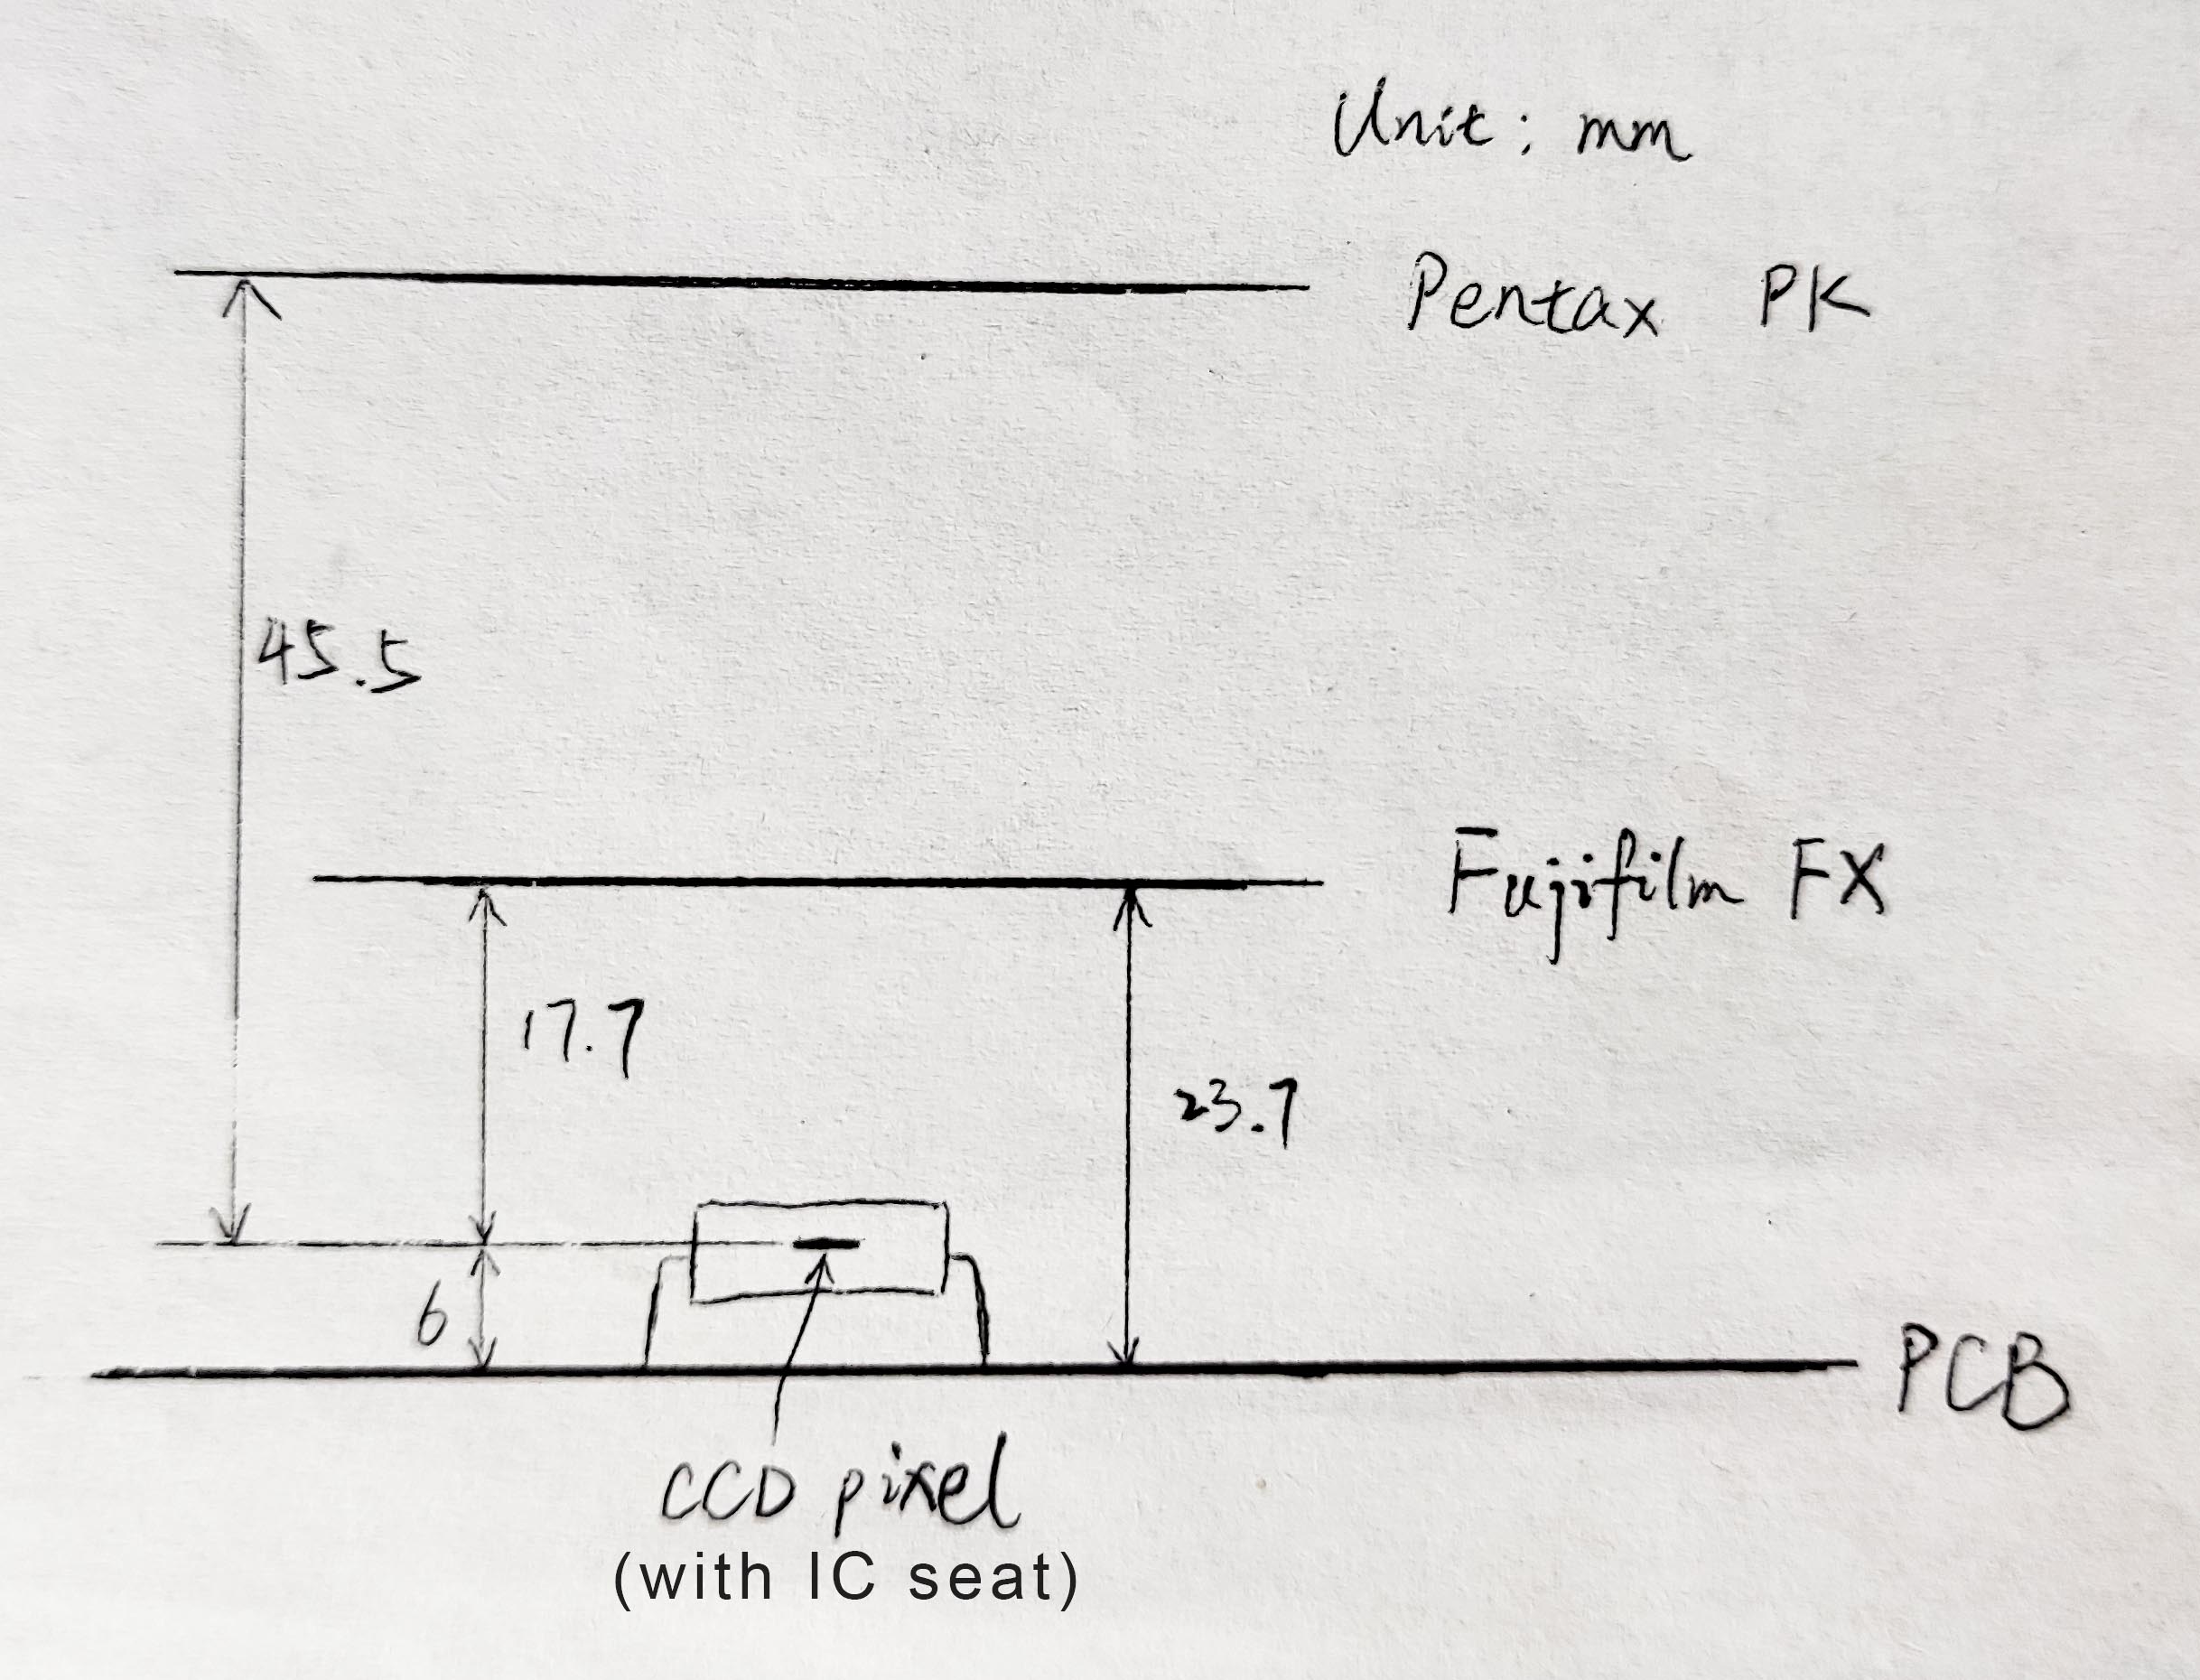 Unit: mm
Pentax PK
45.5
Fujifilm FX
17.7
23.7
6
PCB
CCD pixel
(with IC seat)